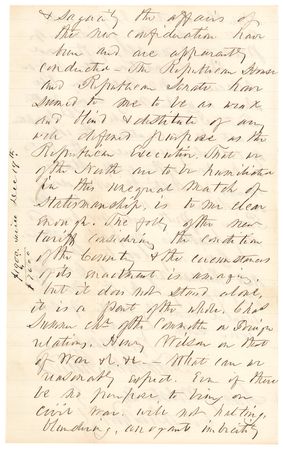 & sagacity the affairs of
the new confederation have
been and are apparently
conducted — The Republican House
and Republican Senate have
seemed to me to be as weak
and blind & destitute of any
well defined purpose as the
Republican Executive. That we
of the North are to be humiliated
in this unequal match of
Statesmanship, is to me clear
enough. The folly of the new
tariff considering the condition
of the Country & the circumstances
of its enactment is amazing,
but it does not stand alone,
it is a part of the whole. Chas
Sumner Chn of the Committee on Foreign
relations, Henry Wilson on that
of War &c. &c. — What can we
reasonably expect. Even if there
be no purpose to bring on
civil war, will not halting,
blundering, arrogant imbecility